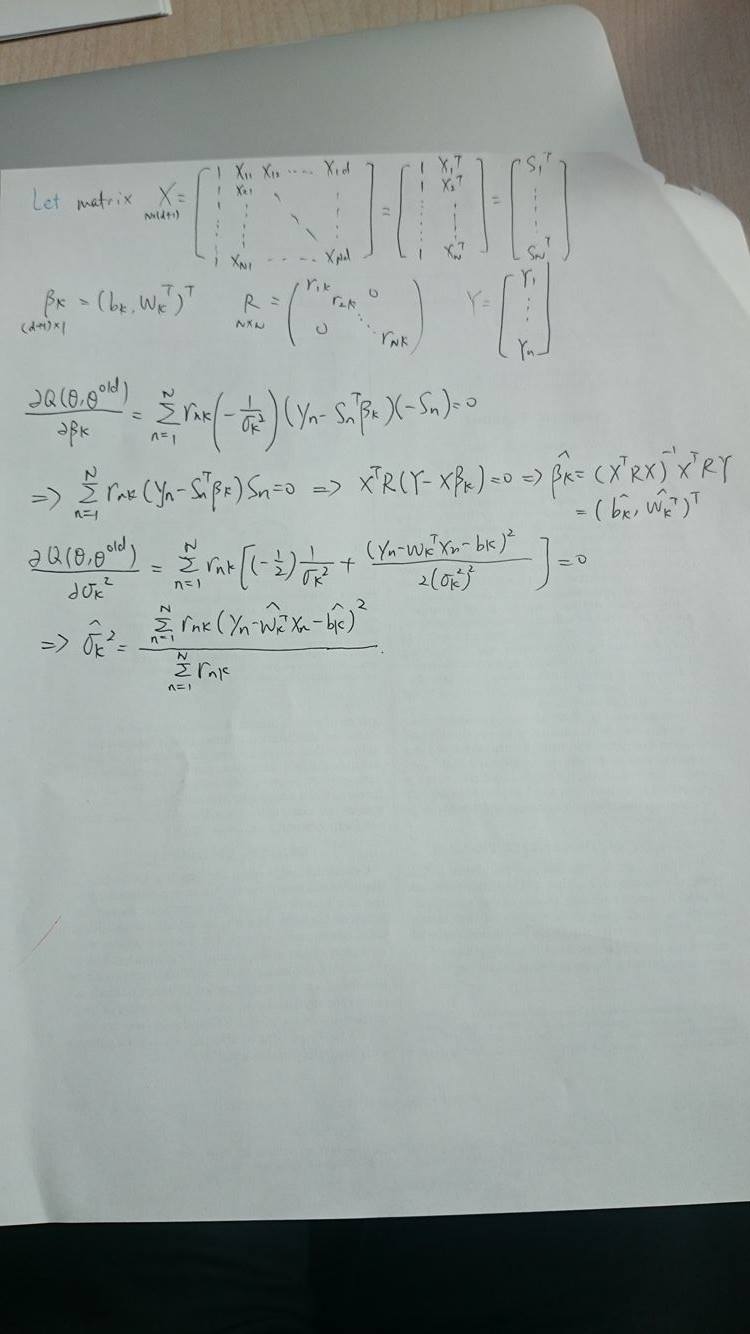 Let matrix X_{N×(d+1)} = [1 x_{11} x_{12} ···· x_{1d}; 1 x_{21} ⋱ ⋮; ⋮ ⋮ ⋱ ⋮; 1 x_{N1} ·· ···· x_{Nd}] = [1 x_1^T; 1 x_2^T; ⋮ ⋮; 1 x_N^T] = [S_1^T; ⋮; S_N^T]
β_k_{(d+1)×1} = (b_k, w_k^T)^T R_{N×N} = (r_{1k} r_{2k} 0; 0 ⋱ r_{Nk}) Y = [Y_1; ⋮; Y_n]
∂Q(θ,θ^{old})/∂β_k = Σ_{n=1}^{N} r_{nk} (-1/σ_k^2) (y_n - S_n^T β_k)(-S_n) = 0
=> Σ_{n=1}^{N} r_{nk} (y_n - S_n^T β_k) S_n = 0 => X^T R (Y - Xβ_k) = 0 => \hat{β_k} = (X^T R X)^{-1} X^T R Y
= (\hat{b_k}, \hat{w_k}^T)^T
∂Q(θ,θ^{old})/∂σ_k^2 = Σ_{n=1}^{N} r_{nk} [(-1/2) 1/σ_k^2 + (y_n - w_k^T x_n - b_k)^2/2(σ_k^2)^2] = 0
=> \hat{σ_k}^2 = Σ_{n=1}^{N} r_{nk} (y_n - \hat{w_k^T} x_n - \hat{b_k})^2 / Σ_{n=1}^{N} r_{nk} .